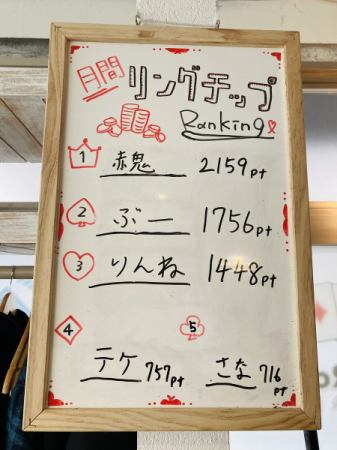 月間 リングチップ
Ranking
1 赤鬼 2159pt
2 ぶー 1756pt
3 りんね 1448pt
4 5
テケ 757pt さな 716pt